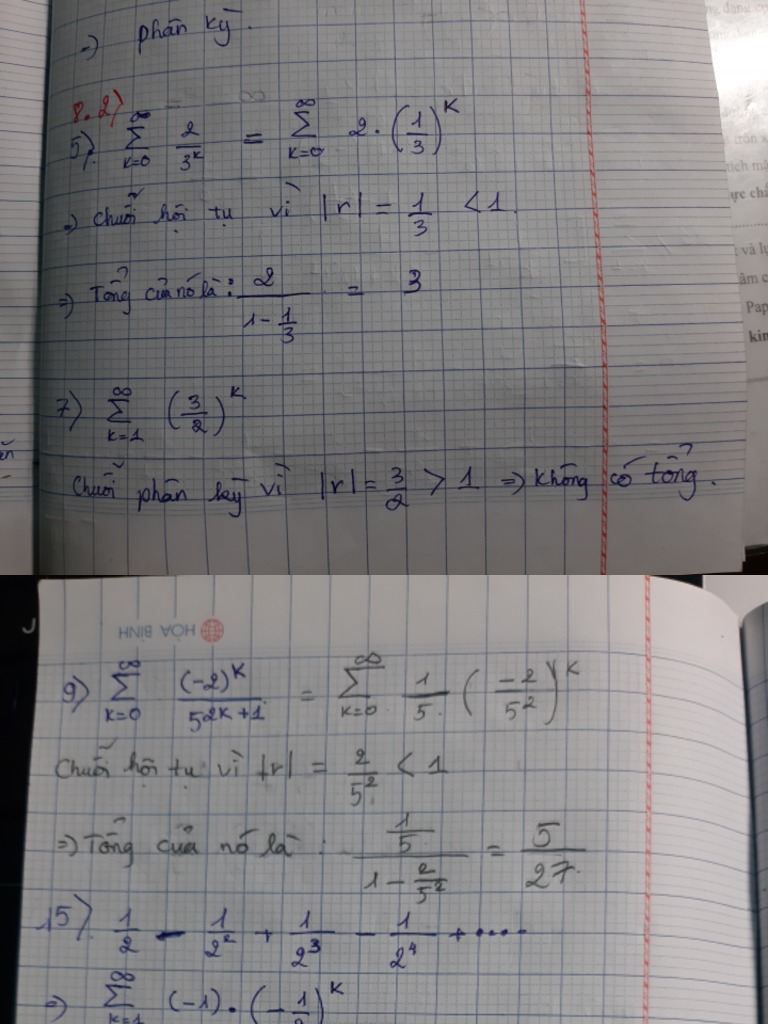 =) phân kỳ.
8.2)
5) ∑_{k=0}^{∞} 2/3^k = ∑_{k=0}^{∞} 2 · (1/3)^k
=) Chuỗi hội tụ vì |r| = 1/3 < 1
=) Tổng của nó là: 2/(1 - 1/3) = 3
7) ∑_{k=1}^{∞} (3/2)^k
Chuỗi phân kỳ vì |r| = 3/2 > 1 => Không có tổng.
HÒA BÌNH
9) ∑_{k=0}^{∞} (-2)^k/5^{2k+1} = ∑_{k=0}^{∞} 1/5 (-2/5^2)^k
Chuỗi hội tụ vì |r| = 2/5^2 < 1
=) Tổng của nó là: (1/5)/(1 - 2/5^2) = 5/27
15) 1/2 - 1/2^2 + 1/2^3 - 1/2^4 + ....
=) ∑_{k=1}^{∞} (-1) · (-1/2)^k